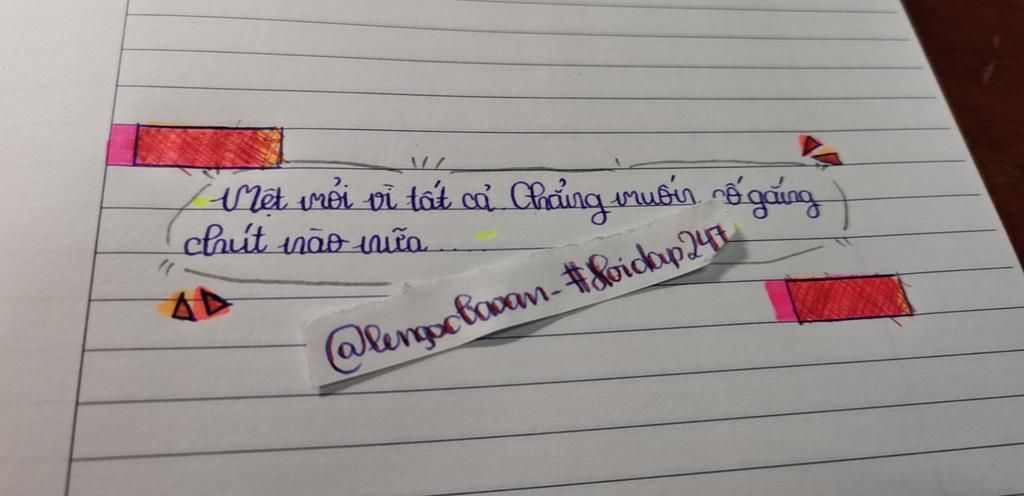 Mệt mỏi vì tất cả Chẳng muốn cố gắng
chút nào nữa...
@lengocbaoan_#Hoidap247